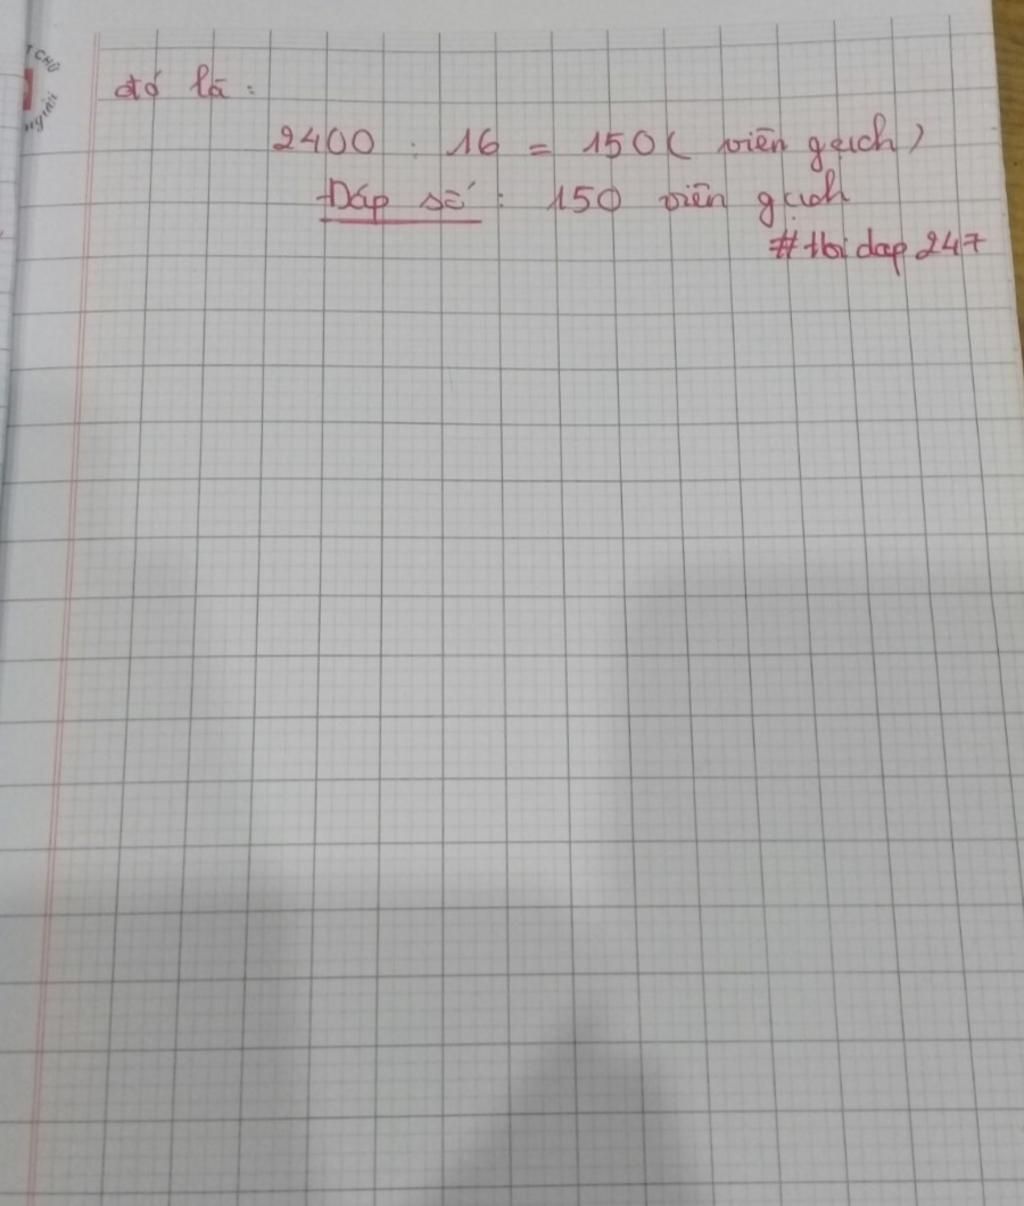 đó là:
2400 : 16 = 150 ( viên gạch )
Đáp số : 150 viên gạch
#hoidap247